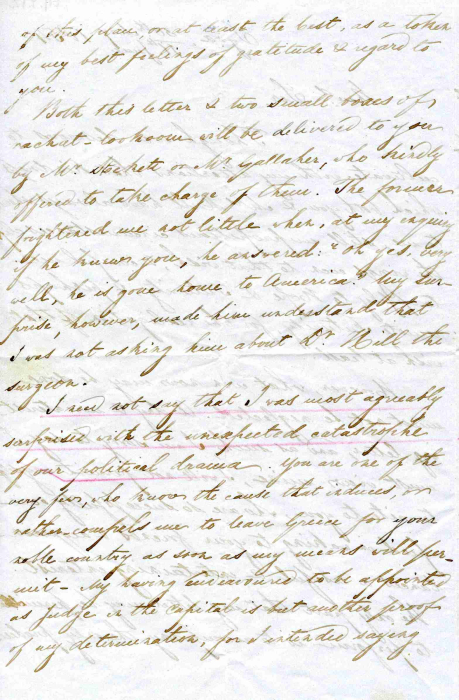 of this place, or at least the best, as a token
of my best feelings of gratitude & regard to
you.
Both this letter & two small boxes of
rachat-lookoom will be delivered to you
by Mr. Hackett or Mr. Gallaher, who kindly
offered to take charge of them. The former
frightened me not little when, at my enquiry
if he knew you, he answered: "Oh yes, very
well, he is gone home to America." My sur-
prise, however, made him understand that
I was not asking him about Dr. Hill the
surgeon.
I need not say that I was most agreeably
surprised with the unexpected catastrophe
of our political drama. You are one of the
very few, who know the cause that induces, or
rather compels me to leave Greece for your
noble country as soon as my means will per-
mit - My having endeavoured to be appointed
as Judge in the capital is but another proof
of my determination, for I intended saying